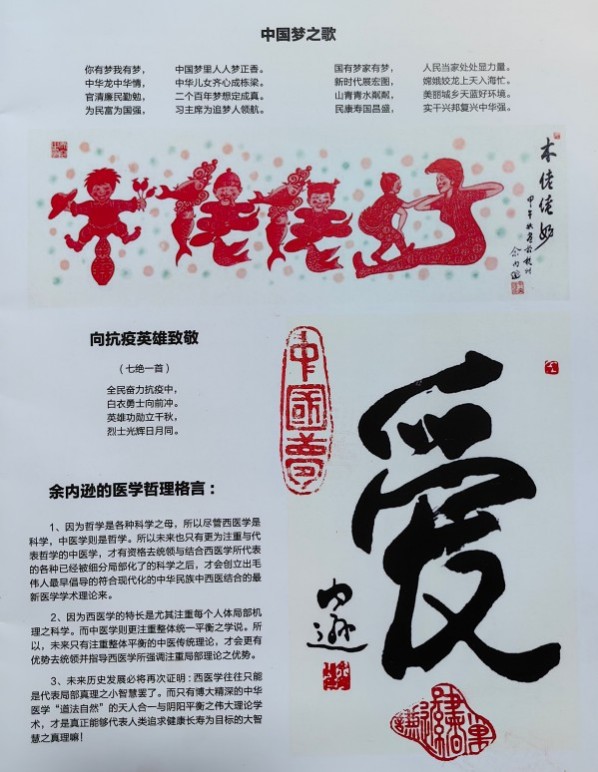 中国梦之歌
你有梦我有梦， 中国梦里人人梦正香。 国有梦家有梦， 人民当家处处显力量。
中华龙中华情， 中华儿女齐心成栋梁。 新时代展宏图， 嫦娥姣龙上天入海忙。
官清廉民勤勉， 二个百年梦想定成真。 山青青水粼粼， 美丽城乡天蓝好环境。
为民富为国强， 习主席为追梦人领航。 民康寿国昌盛， 实干兴邦复兴中华强。
本佬佬好
甲午秋月于杭州
余内逊
向抗疫英雄致敬
（七绝一首）
全民奋力抗疫中，
白衣勇士向前冲。
英雄功勋立千秋，
烈士光辉日月同。
中国梦
爱
内逊
余内逊的医学哲理格言：
1、因为哲学是各种科学之母，所以尽管西医学是
科学，中医学则是哲学。所以未来也只有更为注重与代
表哲学的中医学，才有资格去统领与结合西医学所代表
的各种已经被细分局部化了的科学之后，才会创立出毛
伟人最早倡导的符合现代化的中华民族中西医结合的最
新医学学术理论来。
2、因为西医学的特长是尤其注重每个人体局部机
理之科学。而中医学则更注重整体统一平衡之学说。所
以，未来只有注重整体平衡的中医传统理论，才会更有
优势去统领并指导西医学所强调注重局部理论之优势。
3、未来历史发展必将再次证明：西医学往往只能
是代表局部真理之小智慧罢了。而只有博大精深的中华
医学“道法自然”的天人合一与阴阳平衡之伟大理论学
术，才是真正能够代表人类追求健康长寿为目标的大智
慧之真理嘛！